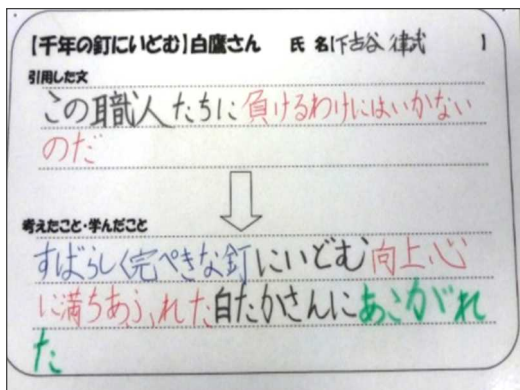 【千年の釘にいどむ】白鷹さん 氏 名(下古谷 律弐 1
引用した文
この職人たちに負けるわけにはいかない
のだ
考えたこと・学んだこと
すばらしく完ぺきな釘にいどむ向上心
に満ちあふれた白たかさんにあこがれ
た